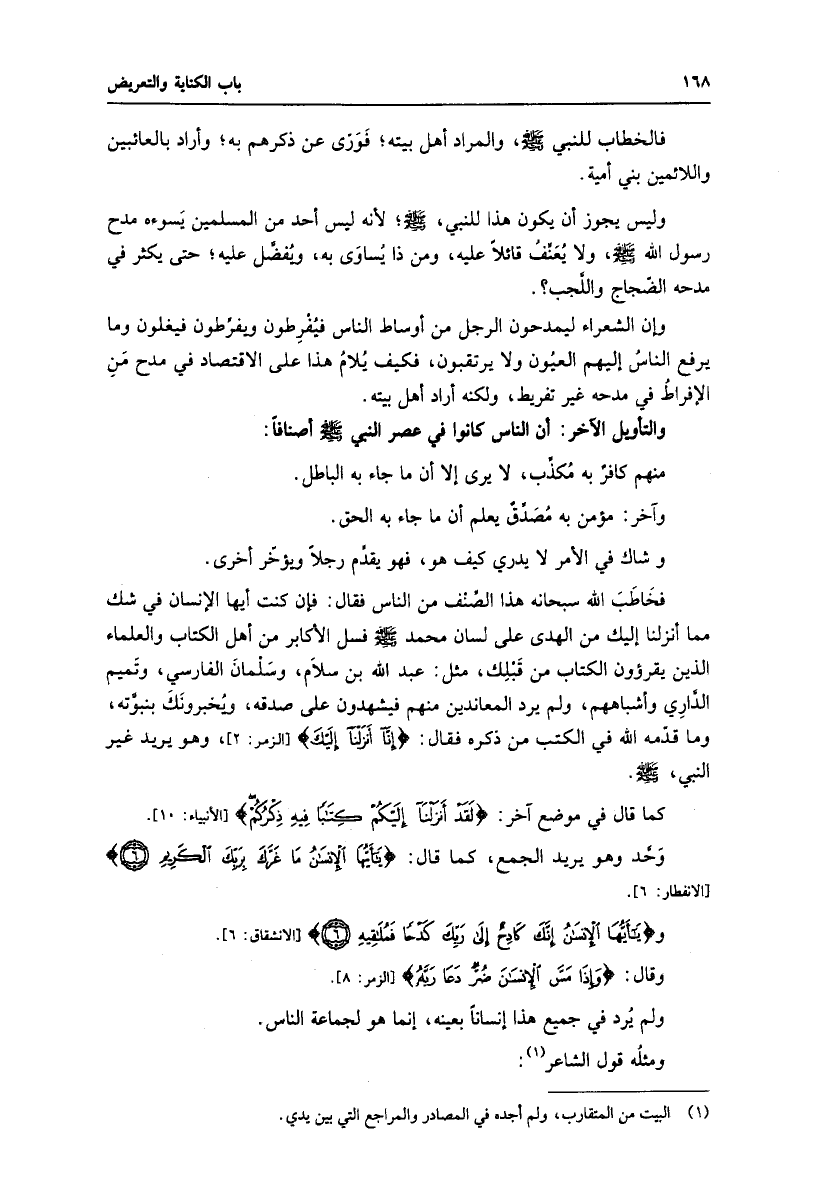 ١٦٨ باب الكناية والتعريض
فالخطاب للنبي ﷺ، والمراد أهل بيته؛ فَوَرّى عن ذكرهم به؛ وأراد بالعائبين
واللائمين بني أمية.
وليس يجوز أن يكون هذا للنبي، ﷺ؛ لأنه ليس أحد من المسلمين يَسوءه مدح
رسول الله ﷺ، ولا يُعَنِّفُ قائلاً عليه، ومن ذا يُساوَى به، ويُفضَّل عليه؛ حتى يكثر في
مدحه الضّجاج واللَّجب؟.
وإن الشعراء ليمدحون الرجل من أوساط الناس فيُفْرِطون ويفرِّطون فيغلون وما
يرفع الناسُ إليهم العيُون ولا يرتقبون، فكيف يُلامُ هذا على الاقتصاد في مدح مَنِ
الإفراطُ في مدحه غير تفريط، ولكنه أراد أهل بيته.
والتأويل الآخر: أن الناس كانوا في عصر النبي ﷺ أصنافاً:
منهم كافرٌ به مُكذِّب، لا يرى إلا أن ما جاء به الباطل.
وآخر: مؤمن به مُصَدِّقٌ يعلم أن ما جاء به الحق.
و شاك في الأمر لا يدري كيف هو، فهو يقدِّم رجلاً ويؤخّر أخرى.
فخَاطَبَ الله سبحانه هذا الصِّنْف من الناس فقال: فإن كنت أيها الإنسان في شك
مما أنزلنا إليك من الهدى على لسان محمد ﷺ فسل الأكابر من أهل الكتاب والعلماء
الذين يقرؤون الكتاب من قَبْلِك، مثل: عبد الله بن سلاَم، وسَلْمانَ الفارسي، وتَميم
الدَّارِي وأشباههم، ولم يرد المعاندين منهم فيشهدون على صدقه، ويُخبرونَكَ بنبوَّته،
وما قدّمه الله في الكتب من ذكره فقال: ﴿إِنَّآ أَنزَلْنَآ إِلَيْكَ﴾ [الزمر: ٢]، وهو يريد غير
النبي، ﷺ.
كما قال في موضع آخر: ﴿لَقَدْ أَنزَلْنَآ إِلَيْكُمْ كِتَٰبًا فِيهِ ذِكْرُكُمْ﴾ [الأنبياء: ١٠].
وَحَّد وهو يريد الجمع، كما قال: ﴿يَٰٓأَيُّهَا ٱلْإِنسَٰنُ مَا غَرَّكَ بِرَبِّكَ ٱلْكَرِيمِ ٦﴾
[الانفطار: ٦].
و﴿يَٰٓأَيُّهَا ٱلْإِنسَٰنُ إِنَّكَ كَادِحٌ إِلَىٰ رَبِّكَ كَدْحًا فَمُلَٰقِيهِ ٦﴾ [الانشقاق: ٦].
وقال: ﴿وَإِذَا مَسَّ ٱلْإِنسَٰنَ ضُرٌّ دَعَا رَبَّهُۥ﴾ [الزمر: ٨].
ولم يُرد في جميع هذا إنساناً بعينه، إنما هو لجماعة الناس.
ومثلُه قول الشاعر(١):
(١) البيت من المتقارب، ولم أجده في المصادر والمراجع التي بين يدي.